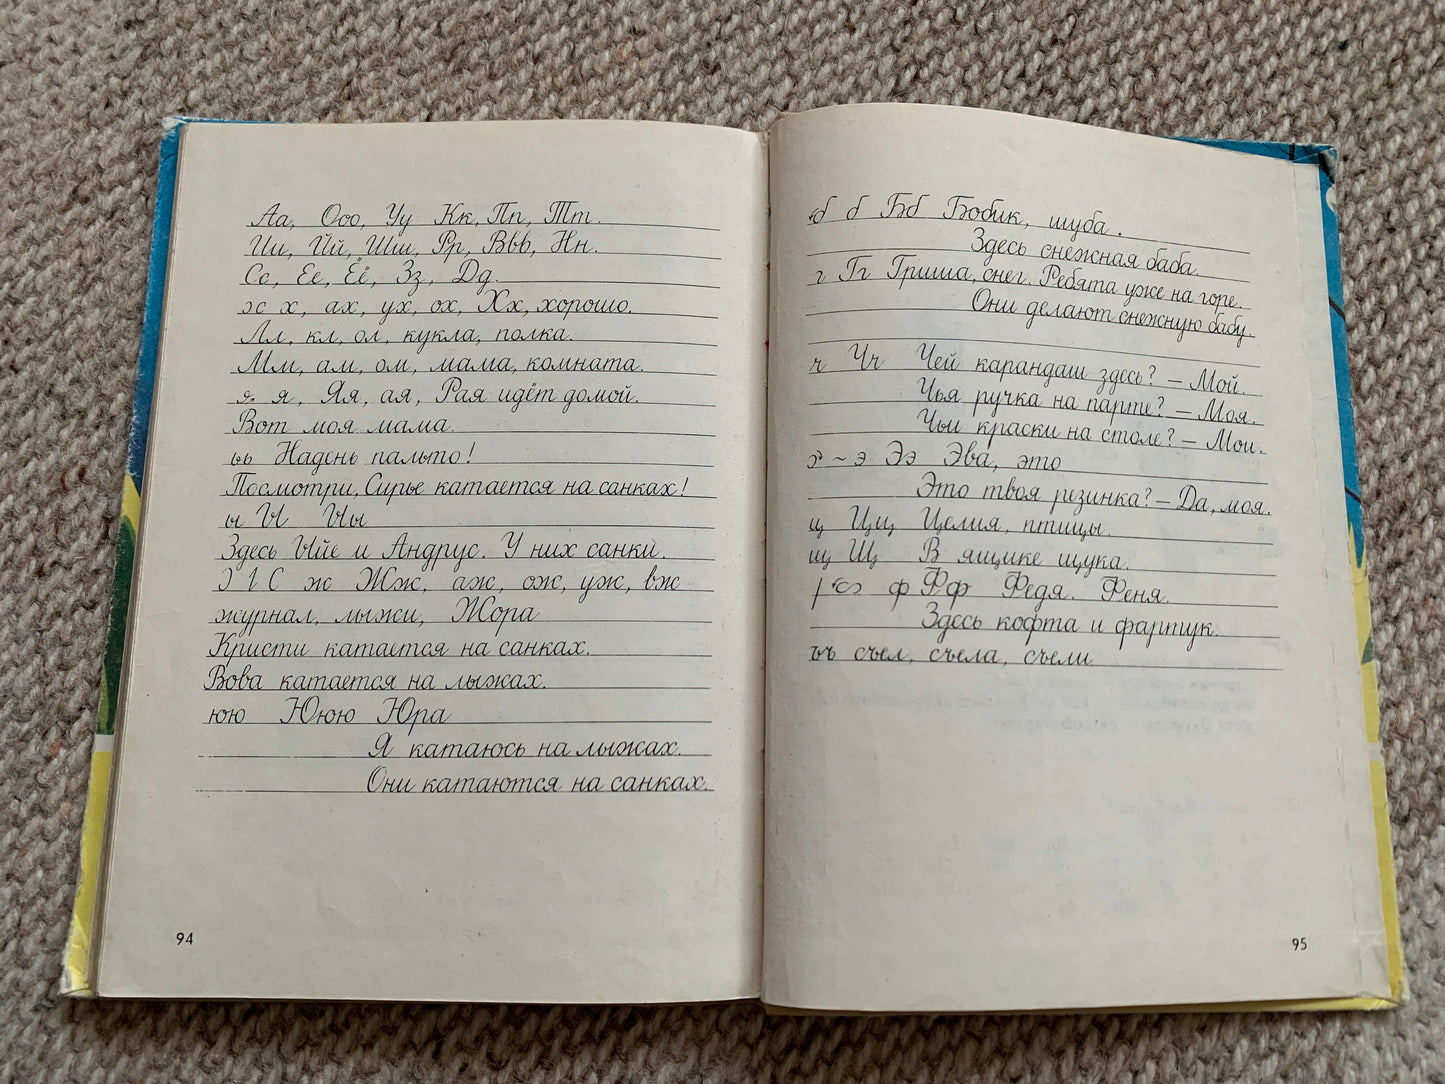 Аа, Ооо, Уу Кк, Пп, Тт.
Ии, Йй, Шш, Рр, Ввв, Нн.
Сс, Ее, Ёё, Зз, Дд.
х х, ах, ух, ох, Хх, хорошо.
Лл, кл, ол, кукла, полка.
Мм, ам, ом, мама, комната.
я, я, Яя, ая, Рая идёт домой.
Вот моя мама.
ьь Надень пальто!
Посмотри, Сирье катается на санках!
ы Ы Ыы
Здесь Ыйе и Андрус. У них санки.
ж Жж, аж, ож, уж, вж
журнал, лыжи, Жора
Кристи катается на санках.
Вова катается на лыжах.
юю Ююю Юра
Я катаюсь на лыжах.
Они катаются на санках.
94
б б Бб Бобик, шуба.
Здесь снежная баба.
г Гг Гриша, снег. Ребята уже на горе.
Они делают снежную бабу.
ч Чч Чей карандаш здесь? – Мой.
Чья ручка на парте? – Моя.
Чьи краски на столе? – Мои.
э ~ э Ээ Эва, это
Это твоя резинка? – Да, моя.
ц Цц Целия, птицы.
щ Щ В ящике щука.
ф Фф Федя. Феня.
Здесь кофта и фартук.
ъъ съел, съела, съели
95